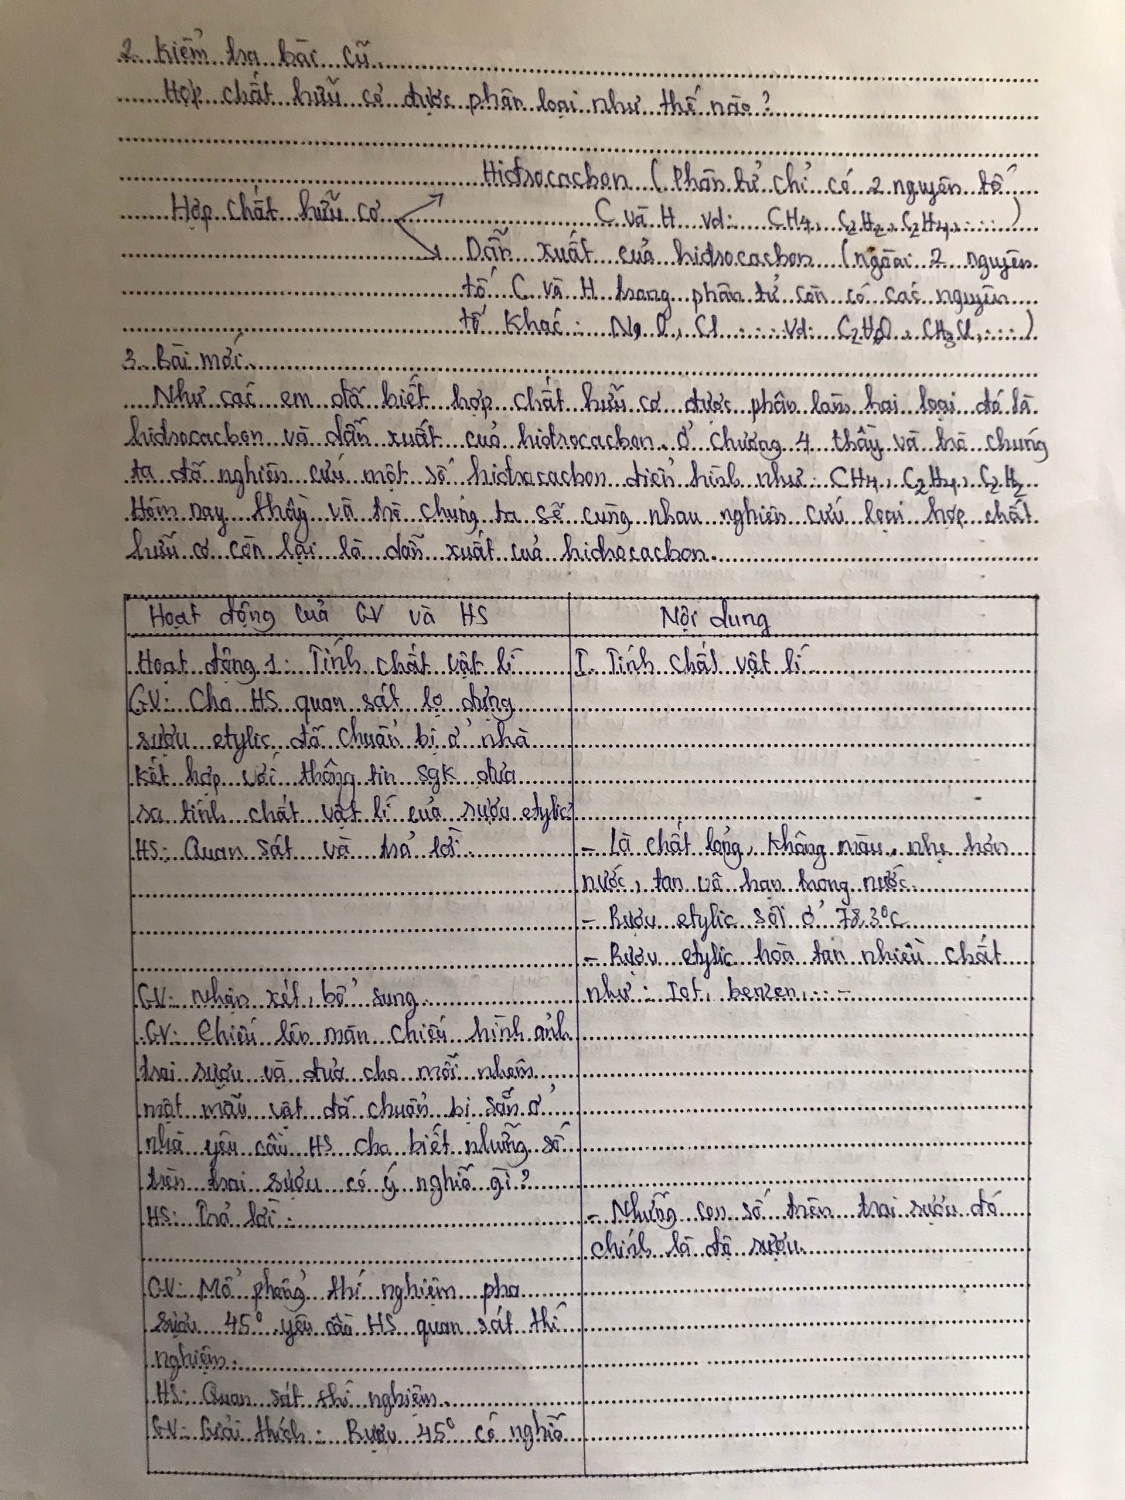 2. Kiểm tra bài cũ
Hợp chất hữu cơ được phân loại như thế nào?
Hidrocacbon (Phân tử chỉ có 2 nguyên tố
Hợp chất hữu cơ
C và H vd: CH4, C2H2, C2H4, ....)
Dẫn xuất của hidrocacbon (ngoài 2 nguyên
tố C và H trong phân tử còn có các nguyên
tố khác: Na, O, Cl .... Vd: C2H6O, CH3Cl, ....)
3. Bài mới
Như các em đã biết hợp chất hữu cơ được phân làm hai loại đó là
hidrocacbon và dẫn xuất của hidrocacbon. Ở chương 4 thầy và trò chúng
ta đã nghiên cứu một số hidrocacbon điển hình như: CH4, C2H4, C2H2.
Hôm nay thầy và trò chúng ta sẽ cùng nhau nghiên cứu loại hợp chất
hữu cơ còn lại là dẫn xuất của hidrocacbon.
Hoạt động của GV và HS
Nội dung
Hoạt động 1: Tính chất vật lí
I. Tính chất vật lí
GV: Cho HS quan sát lọ đựng
rượu etylic đã chuẩn bị ở nhà
kết hợp với thông tin sgk đưa
ra tính chất vật lí của rượu etylic
HS: Quan sát và trả lời.
- Là chất lỏng, không màu, nhẹ hơn
nước, tan vô hạn trong nước.
- Rượu etylic sôi ở 78,3°C
- Rượu etylic hòa tan nhiều chất
như: Iot, benzen, ...
GV: Nhận xét, bổ sung.
GV: Chiếu lên màn chiếu hình ảnh
trai rượu và đưa cho mỗi nhóm
một mẫu vật đã chuẩn bị sẵn ở
nhà yêu cầu HS cho biết những số
trên trai rượu có ý nghĩa gì?
HS: Trả lời.
- Những con số trên trai rượu đó
chính là độ rượu.
GV: Mô phỏng thí nghiệm pha
rượu 45° yêu cầu HS quan sát thí
nghiệm.
HS: Quan sát thí nghiệm.
GV: Giải thích: Rượu 45° có nghĩa